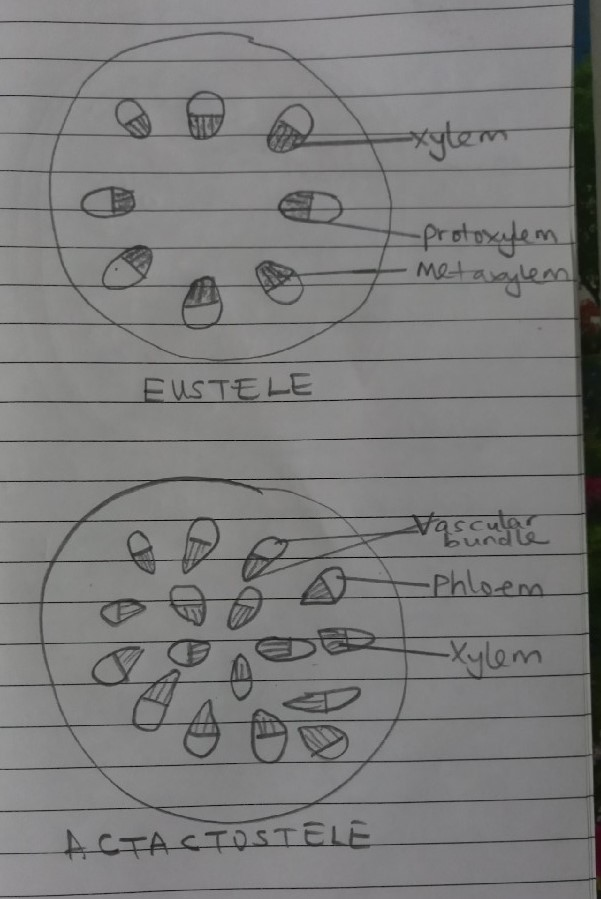 xylem
protoxylem
Metaxylem
EUSTELE
Vascular
bundle
Phloem
Xylem
ACTACTOSTELE